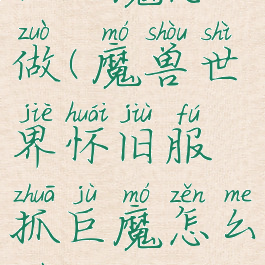 zuò mó shòu shì
做(魔兽世
jiè huái jiù fú
界怀旧服
zhuā jù mó zěn me
抓巨魔怎么